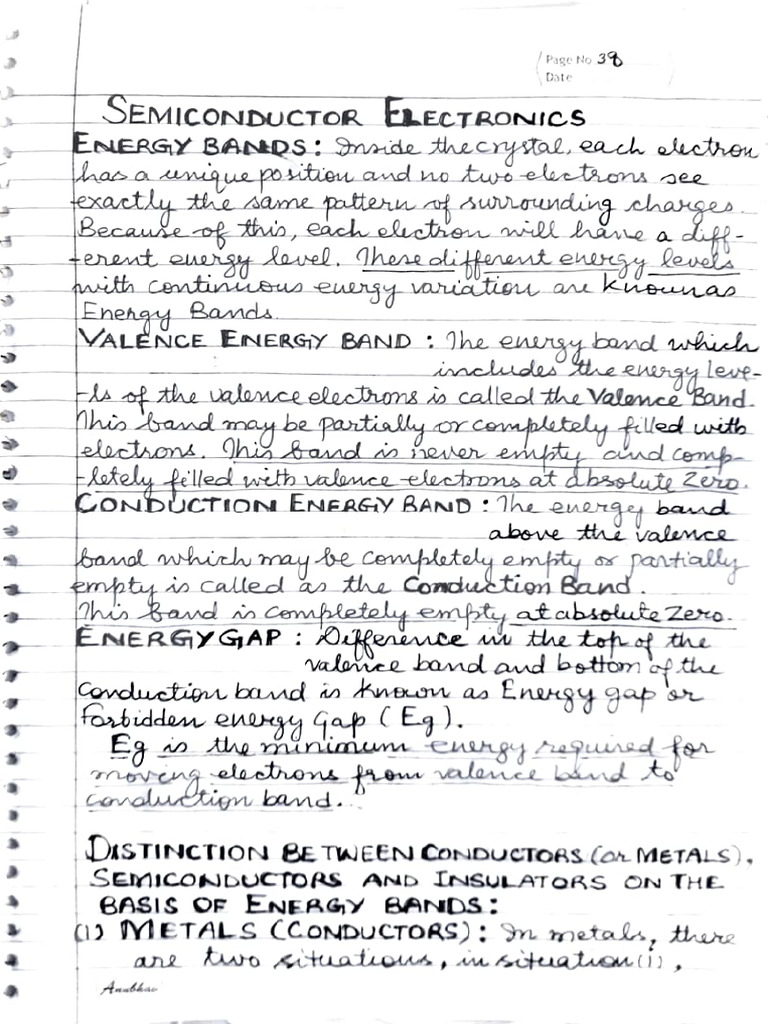 Page No 38
Date
SEMICONDUCTOR ELECTRONICS
ENERGY BANDS: Inside the crystal, each electron
has a unique position and no two electrons see
exactly the same pattern of surrounding charges.
Because of this, each electron will have a diff-
-erent energy level. These different energy levels
with continuous energy variation are known as
Energy Bands.
VALENCE ENERGY BAND : The energy band which
includes the energy leve-
-ls of the valence electrons is called the Valence Band.
This band may be partially or completely filled with
electrons. This band is never empty and comp-
-letely filled with valence electrons at absolute Zero.
CONDUCTION ENERGY BAND : The energy band
above the valence
band which may be completely empty or partially
empty is called as the Conduction Band.
This band is completely empty at absolute Zero.
ENERGY GAP : Difference in the top of the
valence band and bottom of the
Conduction band is known as Energy gap or
Forbidden energy Gap (Eg).
Eg is the minimum energy required for
moving electrons from valence band to
conduction band.
DISTINCTION BETWEEN CONDUCTORS (or METALS),
SEMICONDUCTORS AND INSULATORS ON THE
BASIS OF ENERGY BANDS:
(1) METALS (CONDUCTORS): In metals, there
are two situations, in situation (i),